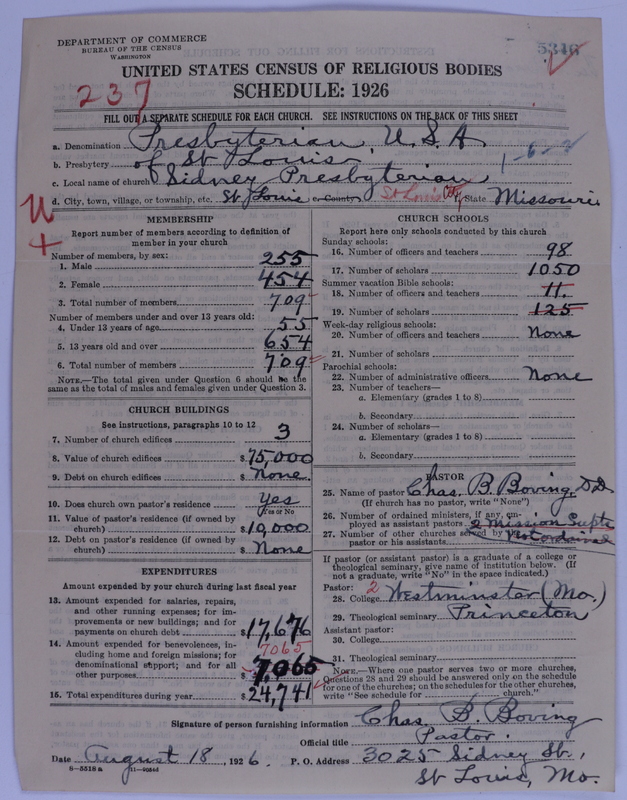 DEPARTMENT OF COMMERCE
BUREAU OF THE CENSUS
WASHINGTON
5346
UNITED STATES CENSUS OF RELIGIOUS BODIES
237
SCHEDULE: 1926
FILL OUT A SEPARATE SCHEDULE FOR EACH CHURCH. SEE INSTRUCTIONS ON THE BACK OF THIS SHEET
a. Denomination Presbyterian, U.S.A
b. Presbytery of St Louis
c. Local name of church Sidney Presbyterian
d. City, town, village, or township, etc. St Louis e. County St Louis City State Missouri
MEMBERSHIP
Report number of members according to definition of
member in your church
Number of members, by sex:
1. Male 255
2. Female 454
3. Total number of members 709
Number of members under and over 13 years old:
4. Under 13 years of age 55
5. 13 years old and over 654
6. Total number of members 709
NOTE.—The total given under Question 6 should be the
same as the total of males and females given under Question 3.
CHURCH BUILDINGS
See instructions, paragraphs 10 to 12
7. Number of church edifices 3
8. Value of church edifices $75,000
9. Debt on church edifices $None
10. Does church own pastor's residence Yes
Yes or No
11. Value of pastor's residence (if owned by
church) $10,000
12. Debt on pastor's residence (if owned by
church) $None
EXPENDITURES
Amount expended by your church during last fiscal year
13. Amount expended for salaries, repairs,
and other running expenses; for im-
provements or new buildings; and for
payments on church debt $17,676
14. Amount expended for benevolences, in-
cluding home and foreign missions; for
denominational support; and for all
other purposes $7,065
7065
15. Total expenditures during year $24,741
CHURCH SCHOOLS
Report here only schools conducted by this church
Sunday schools:
16. Number of officers and teachers 98
17. Number of scholars 1050
Summer vacation Bible schools:
18. Number of officers and teachers 11
19. Number of scholars 125
Week-day religious schools:
20. Number of officers and teachers None
21. Number of scholars
Parochial schools:
22. Number of administrative officers None
23. Number of teachers—
a. Elementary (grades 1 to 8)
b. Secondary
24. Number of scholars—
a. Elementary (grades 1 to 8)
b. Secondary
PASTOR
25. Name of pastor Chas. B. Boving, D.D
(If church has no pastor, write "None")
26. Number of ordained ministers, if any, em-
ployed as assistant pastors 2 Mission Supts
27. Number of other churches served by the Not Ordained
pastor or his assistants
If pastor (or assistant pastor) is a graduate of a college or
theological seminary, give name of institution below. (If
not a graduate, write "No" in the space indicated.)
Pastor: 2
28. College Westminster (Mo.)
29. Theological seminary Princeton
Assistant pastor:
30. College
31. Theological seminary
NOTE.—Where one pastor serves two or more churches,
Questions 28 and 29 should be answered only on the schedule
for one of the churches; on the schedules for the other churches,
write "See schedule for church."
Signature of person furnishing information Chas. B. Boving
Official title Pastor.
Date August 18, 1926. P. O. Address 3025 Sidney St.,
St Louis, Mo.